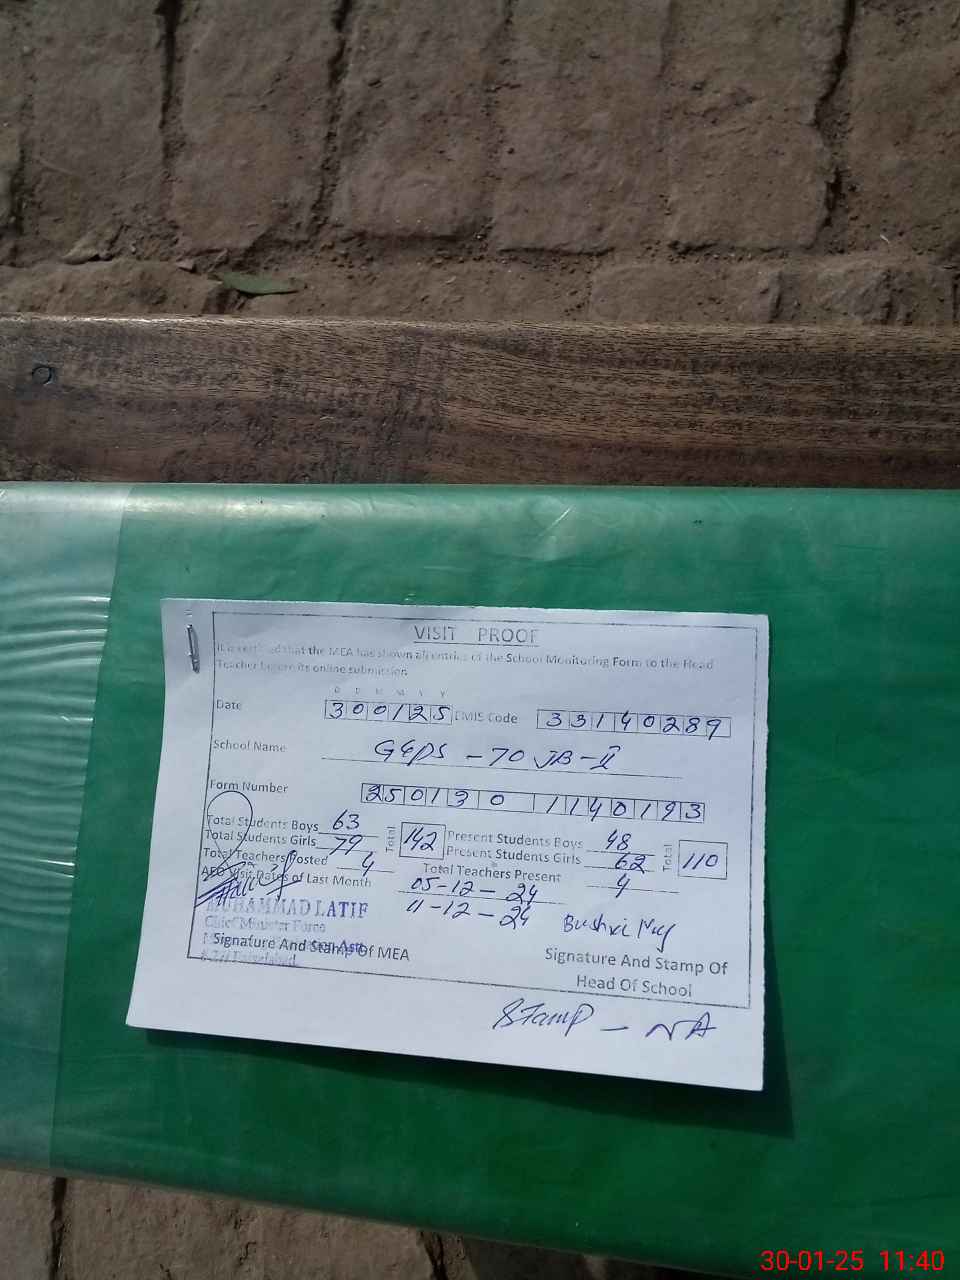 VISIT PROOF
It is certified that the MEA has shown all entries of the School Monitoring Form to the Head
Teacher before its online submission.
D D M M Y Y
Date 300125 EMIS Code 33140289
School Name GGPS - 70 JB - II
Form Number 250130 1140193
Total Students Boys 63 Total 142 Present Students Boys 48 Total 110
Total Students Girls 79 Present Students Girls 62
Total Teachers Posted 4 Total Teachers Present 4
AEO Visit Dates of Last Month 05-12-24
11-12-24
MUHAMMAD LATIF
Chief Minister Force
Bushra
Signature And Stamp Of MEA
Signature And Stamp Of
Head Of School
Stamp - NA
30-01-25 11:40